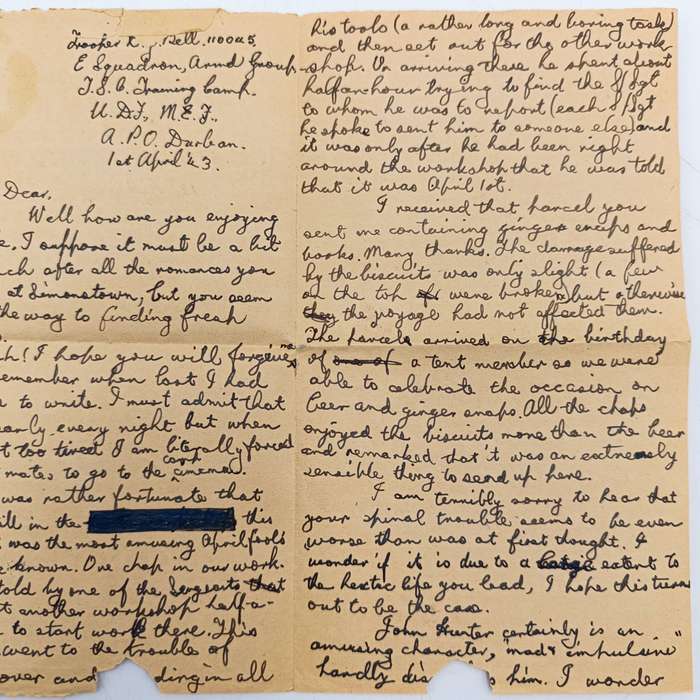 Trooper R. J. Bell. 110045
E Squadron, Armd Group.
T.S.C. Training Camp.
U.D.F., M.E.F.,
A.P.O. Durban.
1st April 43.
Dear,
Well how are you enjoying
I suppose it must be a bit
after all the romances you
at Simonstown, but you seem
the way to finding fresh
I hope you will forgive me
remember when last I had
to write. I must admit that
nearly every night but when
too tired I am literally forced
mates to go to the camp cinema.
was rather fortunate that
in the this
was the most amusing April fools
known. One chap in our work-
told by one of the Sergeants that
another workshop half-a-
to start work there. This
went to the trouble of
over and in all
his tools (a rather long and boring task)
and then set out for the other work-
shop. On arriving there he spent about
half an hour trying to find the S/Sgt
to whom he was to report (each S/Sgt
he spoke to sent him to someone else) and
it was only after he had been right
around the workshop that he was told
that it was April 1st.
I received that, parcel you
sent me containing ginger snaps and
books. Many thanks. The damage suffered
by the biscuits was only slight (a few
on the top of were broken) but otherwise
they the voyage had not affected them.
The parcels arrived on the birthday
of one of a tent member so we were
able to celebrate the occasion on
beer and ginger snaps. All the chaps
enjoyed the biscuits more than the beer
and remarked that it was an extremely
sensible thing to send up here.
I am terribly sorry to hear that
your spinal trouble seems to be even
worse than was at first thought. I
wonder if it is due to a large extent to
the hectic life you lead, I hope this turns
out to be the case.
John Hunter certainly is an
amusing character, "mad & impulsive"
hardly him. I wonder